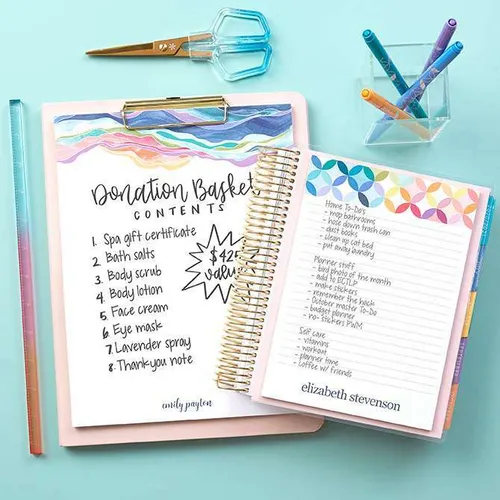 Donation Basket
CONTENTS
1. Spa gift certificate
2. Bath salts
3. Body scrub
4. Body lotion
5. Face cream
6. Eye mask
7. Lavender spray
8. Thank you note
$425
value!
emily payton
Home To-Do's
- mop bathrooms
- hose down trash can
- dust books
- clean up cat bed
- put away laundry
Planner stuff
- bird photo of the month
- add to ECTLP
- make stickers
- remember the hack
- October master To-Do
- budget planner
- no- stickers PWM
Self care
- vitamins
- workout
- planner time
- coffee w/ friends
elizabeth stevenson